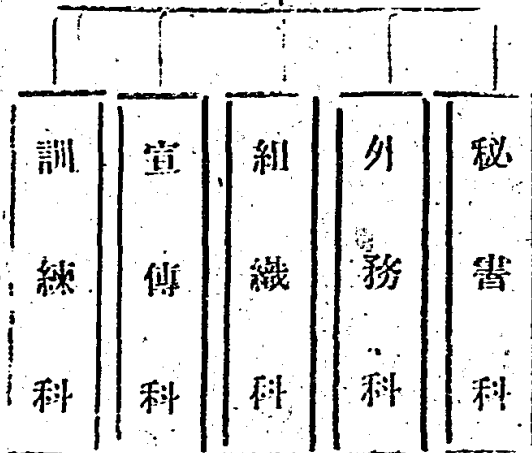 秘書科
外務科
組織科
宣傳科
訓練科